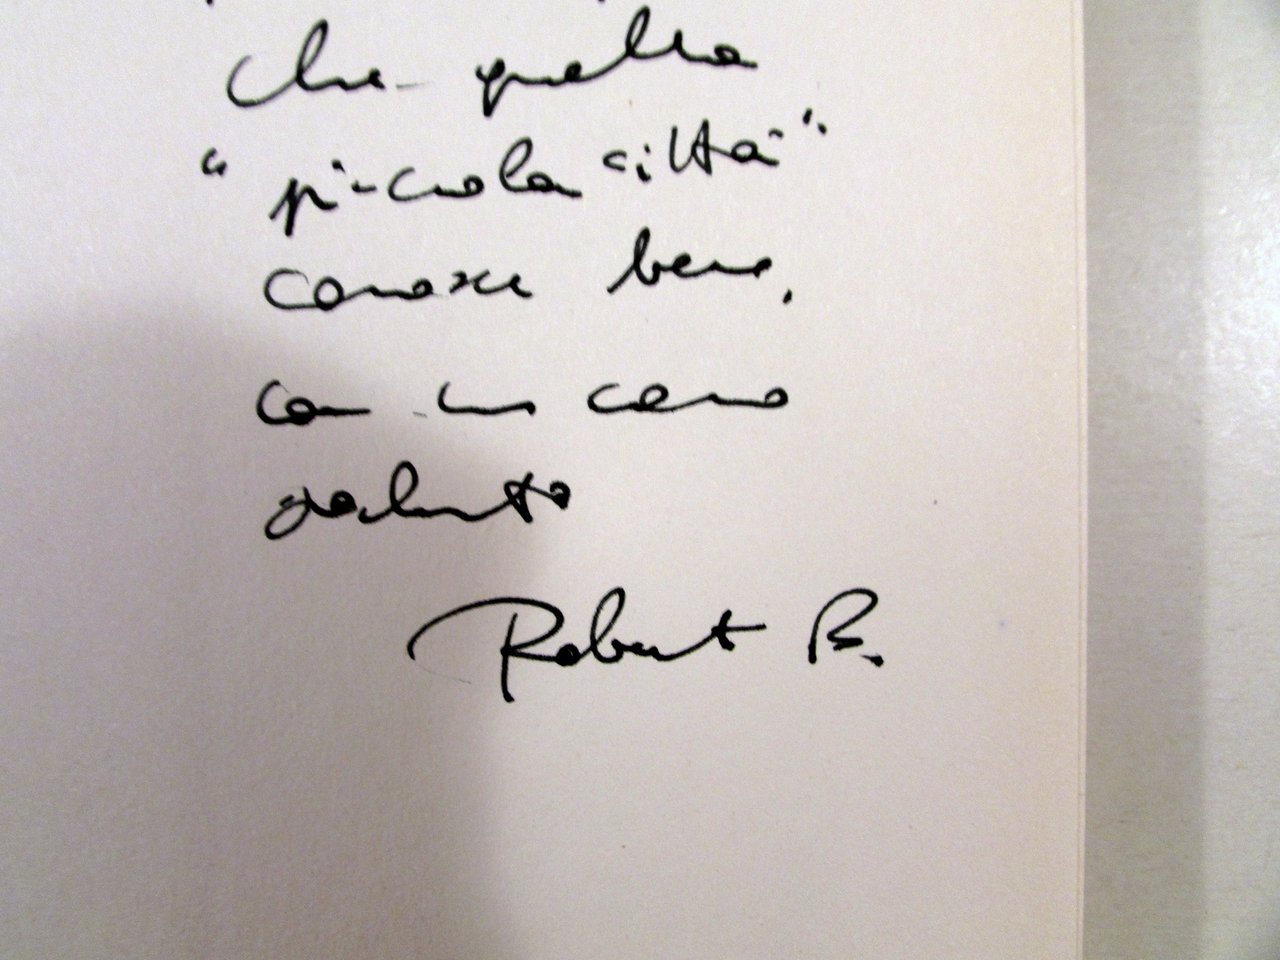 che quella
"piccola città"
conosce bene,
con un caro
saluto
Robert B.